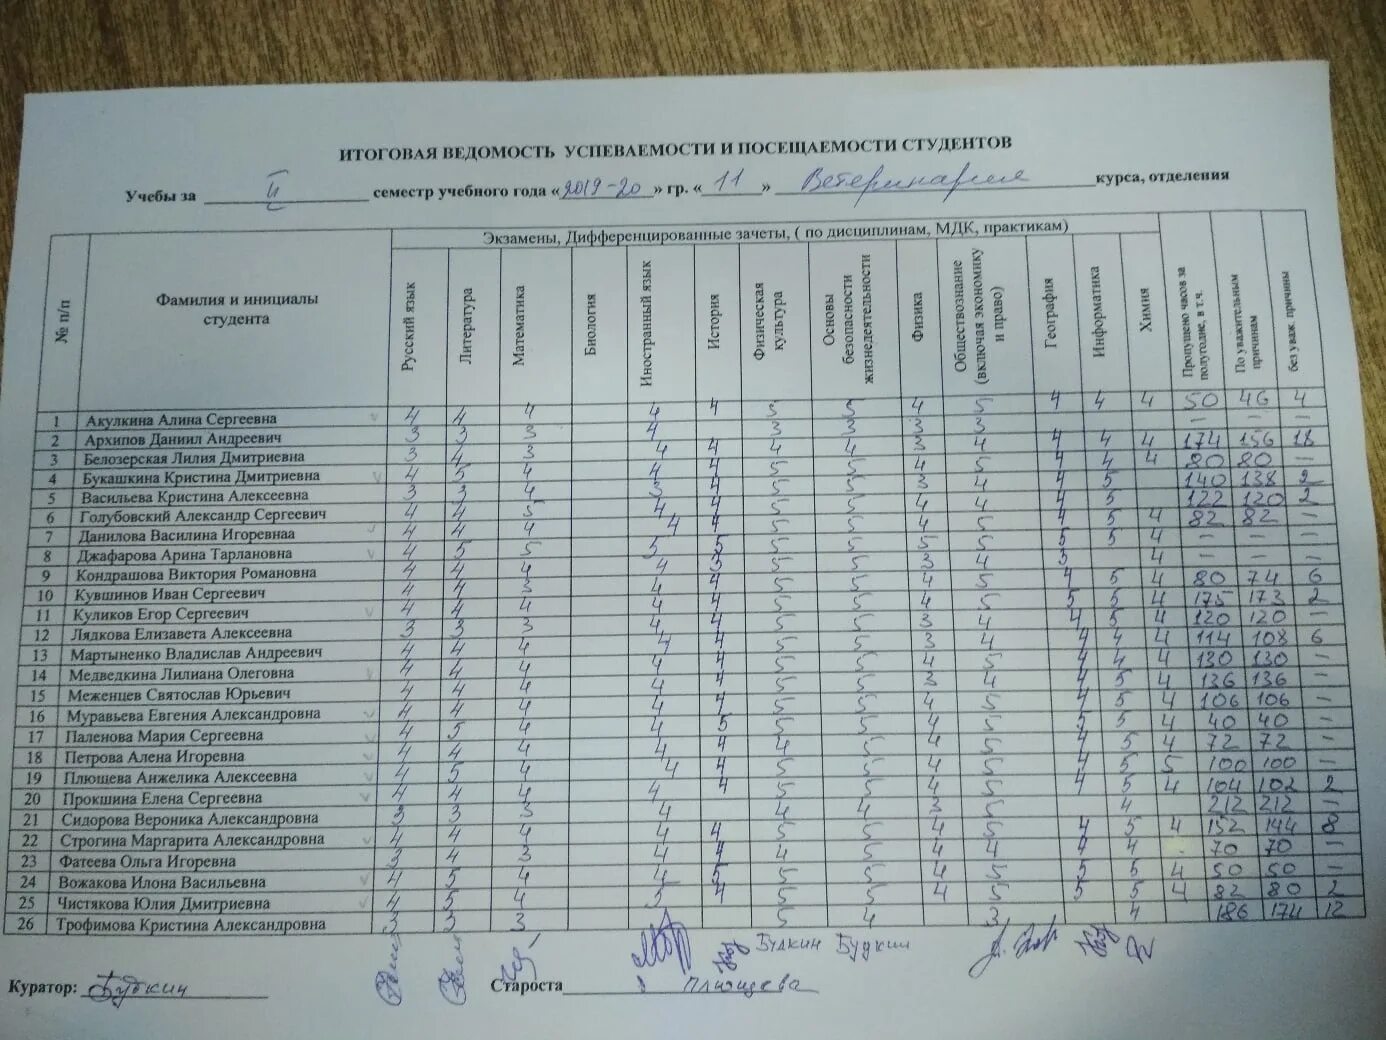 ИТОГОВАЯ ВЕДОМОСТЬ УСПЕВАЕМОСТИ И ПОСЕЩАЕМОСТИ СТУДЕНТОВ
Учебы за II семестр учебного года «2019-20» гр. «11» Ветеринария курса, отделения
Экзамены, Дифференцированные зачеты, ( по дисциплинам, МДК, практикам)
№ п/п
Фамилия и инициалы
студента
Русский язык
Литература
Математика
Биология
Иностранный язык
История
Физическая
культура
Основы
безопасности
жизнедеятельности
Физика
Обществознание
(включая экономику
и право)
География
Информатика
Химия
Пропущено часов за
полугодие, в т.ч.
По уважительным
причинам
без уваж. причины
1 Акулкина Алина Сергеевна 4 4 4 4 4 5 5 4 5 4 4 4 50 46 4
2 Архипов Даниил Андреевич 3 3 3 4 3 3 3 3 – – –
3 Белозерская Лилия Дмитриевна 3 4 3 4 4 4 4 3 4 4 4 4 174 156 18
4 Букашкина Кристина Дмитриевна 4 5 4 4 4 5 5 4 5 4 4 4 80 80 –
5 Васильева Кристина Алексеевна 3 3 4 3 4 5 5 3 4 4 5 140 138 2
6 Голубовский Александр Сергеевич 4 4 5 4 4 5 5 4 4 4 5 122 120 2
7 Данилова Василина Игоревнаа 4 4 4 4 4 5 5 4 5 4 5 4 82 82 –
8 Джафарова Арина Тарлановна 4 5 5 5 5 5 5 5 5 5 5 4 – – –
9 Кондрашова Виктория Романовна 4 4 4 4 3 5 5 3 4 3 4 – – –
10 Кувшинов Иван Сергеевич 4 4 3 4 4 5 5 4 5 4 5 4 80 74 6
11 Куликов Егор Сергеевич 4 4 4 4 4 5 5 4 5 5 5 4 175 173 2
12 Лядкова Елизавета Алексеевна 3 3 3 4 4 5 5 3 4 4 5 4 120 120 –
13 Мартыненко Владислав Андреевич 4 4 4 4 4 5 5 3 4 4 4 4 114 108 6
14 Медведкина Лилиана Олеговна 4 4 4 4 4 5 5 4 5 4 4 4 130 130 –
15 Меженцев Святослав Юрьевич 4 4 4 4 4 5 5 3 4 4 5 4 136 136 –
16 Муравьева Евгения Александровна 4 4 4 4 4 5 5 4 5 4 5 4 106 106 –
17 Паленова Мария Сергеевна 4 5 4 4 5 5 5 4 5 5 5 4 40 40 –
18 Петрова Алена Игоревна 4 4 4 4 4 4 5 4 5 4 5 4 72 72 –
19 Плющева Анжелика Алексеевна 4 5 4 4 4 5 5 4 5 4 5 5 100 100 –
20 Прокшина Елена Сергеевна 4 4 4 4 4 5 5 4 5 4 5 4 104 102 2
21 Сидорова Вероника Александровна 3 3 3 4 4 4 3 5 4 212 212 –
22 Строгина Маргарита Александровна 4 4 4 4 4 5 5 4 5 4 5 4 152 144 8
23 Фатеева Ольга Игоревна 3 4 3 4 4 4 5 4 4 4 4 70 70 –
24 Вожакова Илона Васильевна 4 5 4 4 5 5 5 4 5 5 5 4 50 50 –
25 Чистякова Юлия Дмитриевна 4 5 4 5 4 5 5 4 5 5 5 4 82 80 2
26 Трофимова Кристина Александровна 3 3 3 5 4 3 4 186 174 12
Будкин Будкин
Куратор: Будкин Староста Плющева